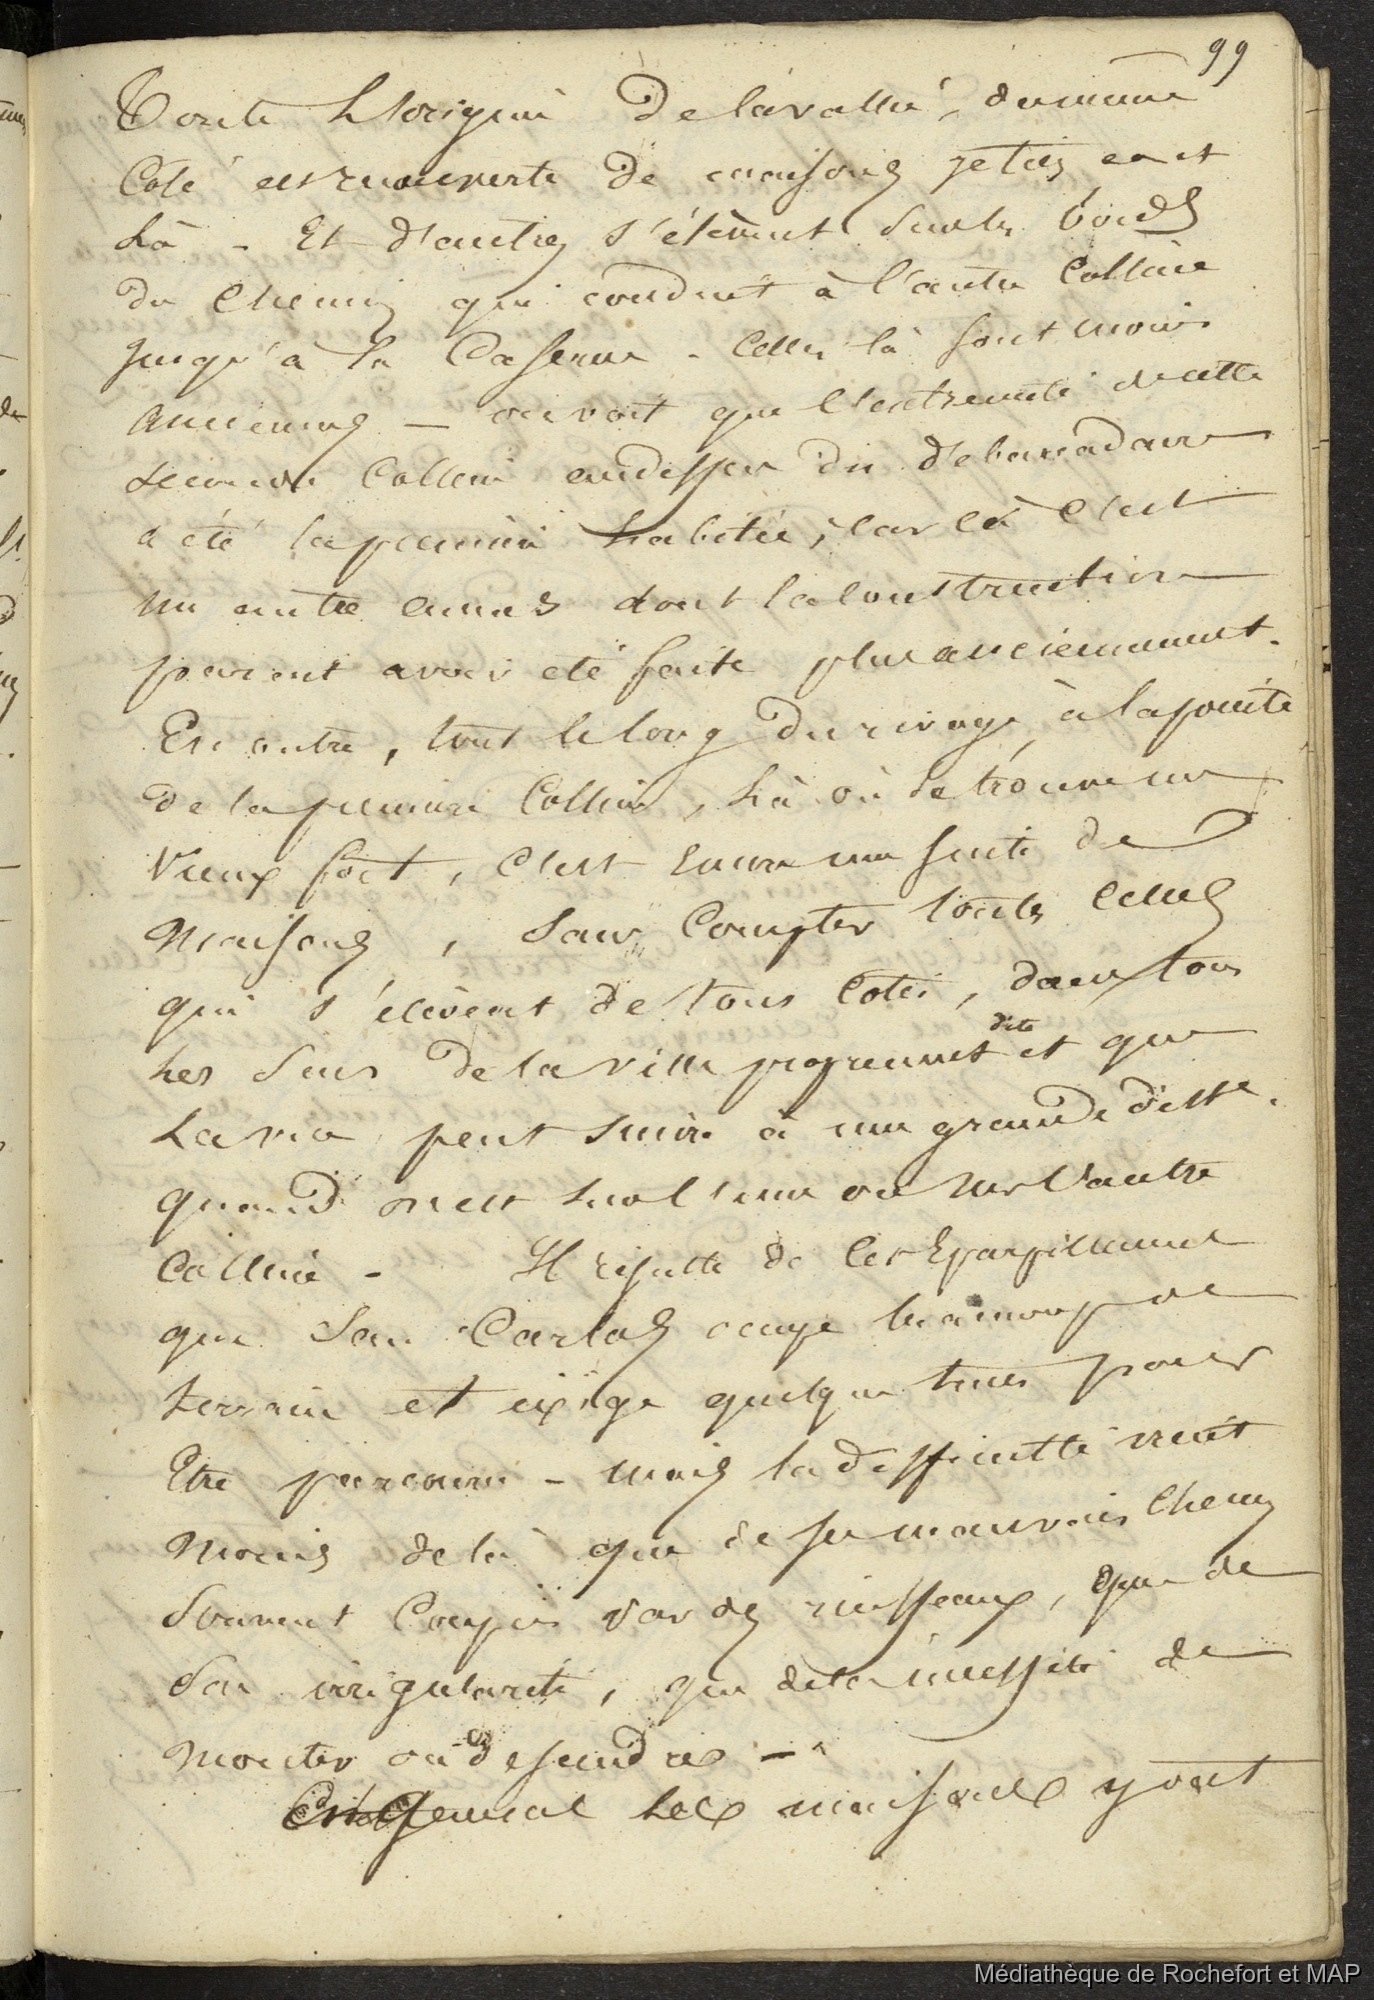 99
Toute L'origine De la vallée, du même
Coté est recouverte de maisons jetées ca et
Là - Et d'autres s'élèvent sur les bords
du Chemin qui conduit à l'autre Colline
Jusqu'à la Caserne - Celles là sont moins
anciennes — on voit que l'extremité de cette
seconde Colline audessus du débarcadaire
a été la première habitée, car là c'est
un autre amas dont la construction
parait avoir été faite plus anciennement.
En outre, tout le long du rivage, à la pointe
de la première Colline, Là où se trouve un
Vieux fort, c'est encore une suite de
Maisons, Sans Compter toutes celles
qui s'élèvent de tous Cotés, dans tous
Les Sens De la ville proprement dite et que
La vue peut suivre à une grande distce.
quand on est sur l'une ou sur l'autre
Colline - Il résulte de cet Eparpillement
que San Carlos occupe beaucoup de
terrain et exige quelque tems pour
Etre parcouru - mais la difficulté vient
Moins de là que de ses mauvais Chemins
Souvent Coupés par des ruisseaux, que de
Son irrégularité, que de la nécessité de
Monter ou descendre -
En General Les maisons y ont
Médiathèque de Rochefort et MAP